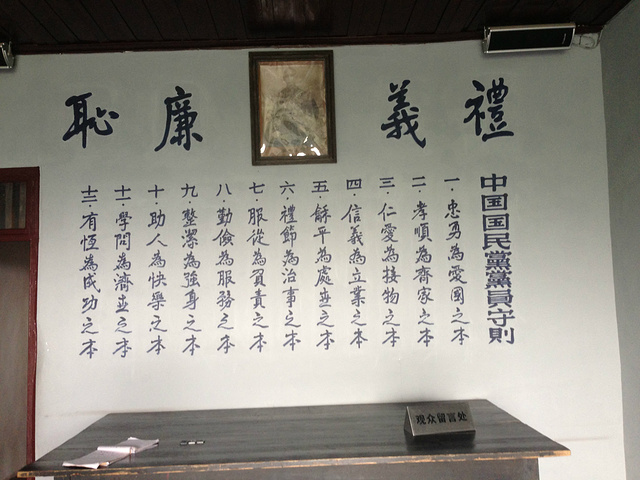 禮
義
廉
恥
中国国民黨黨員守則
一·忠勇為愛國之本
二·孝順為齊家之本
三·仁愛為接物之本
四·信義為立業之本
五·龢平為處世之本
六·禮節為治事之本
七·服從為負責之本
八·勤儉為服務之本
九·整潔為強身之本
十·助人為快樂之本
十一·學問為濟世之本
十二·有恆為成功之本
观众留言处